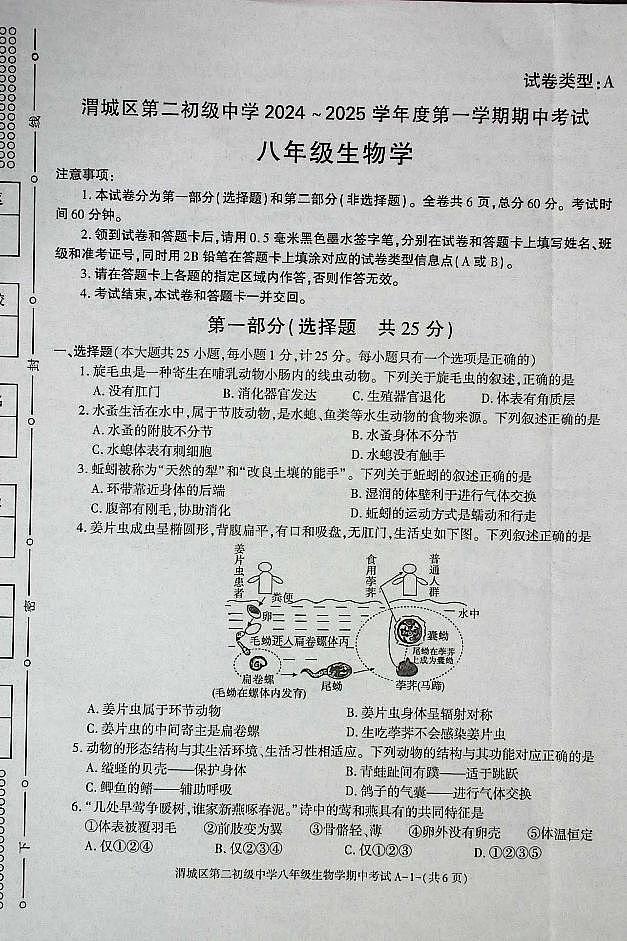 试卷类型:A
渭城区第二初级中学2024~2025学年度第一学期期中考试
八年级生物学
注意事项:
1.本试卷分为第一部分(选择题)和第二部分(非选择题)。全卷共6页,总分60分。考试时
间60分钟。
2.领到试卷和答题卡后,请用0.5毫米黑色墨水签字笔,分别在试卷和答题卡上填写姓名、班
级和准考证号,同时用2B铅笔在答题卡上填涂对应的试卷类型信息点(A或B)。
3.请在答题卡上各题的指定区域内作答,否则作答无效。
4.考试结束,本试卷和答题卡一并交回。
第一部分(选择题 共25分)
一、选择题(本大题共25小题,每小题1分,计25分。每小题只有一个选项是正确的)
1.旋毛虫是一种寄生在哺乳动物小肠内的线虫动物。下列关于旋毛虫的叙述,正确的是
A.没有肛门 B.消化器官发达 C.生殖器官退化 D.体表有角质层
2.水虿生活在水中,属于节肢动物,是水螅、鱼类等水生动物的食物来源。下列叙述正确的是
A.水虿的附肢不分节 B.水虿身体不分节
C.水螅体表有刺细胞 D.水螅没有触手
3.蚯蚓被称为“天然的犁”和“改良土壤的能手”。下列关于蚯蚓的叙述正确的是
A.环带靠近身体的后端 B.湿润的体壁利于进行气体交换
C.腹部有刚毛,协助消化 D.蚯蚓的运动方式是蠕动和行走
4.姜片虫成虫呈椭圆形,背腹扁平,有口和吸盘,无肛门,生活史如下图。下列叙述正确的是
姜片虫患者
食用荸荠
普通人群
粪便
水中
卵
毛蚴进入扁卷螺体内
囊蚴
尾蚴在荸荠
上成为囊蚴
扁卷螺
(毛蚴在螺体内发育)
尾蚴
荸荠(马蹄)
A.姜片虫属于环节动物 B.姜片虫身体呈辐射对称
C.姜片虫的中间寄主是扁卷螺 D.生吃荸荠不会感染姜片虫
5.动物的形态结构与其生活环境、生活习性相适应。下列动物的结构与其功能对应正确的是
A.缢蛏的贝壳——保护身体 B.青蛙趾间有蹼——适于跳跃
C.鲫鱼的鳍——辅助呼吸 D.鸽子的气囊——进行气体交换
6.“几处早莺争暖树,谁家新燕啄春泥。”诗中的莺和燕具有的共同特征是
①体表被覆羽毛 ②前肢变为翼 ③骨骼轻、薄 ④卵外没有卵壳 ⑤体温恒定
A.仅①②④ B.仅②③④ C.仅①②③ D.①②③⑤
渭城区第二初级中学八年级生物学期中考试A-1-(共6页)
线
封
密
下